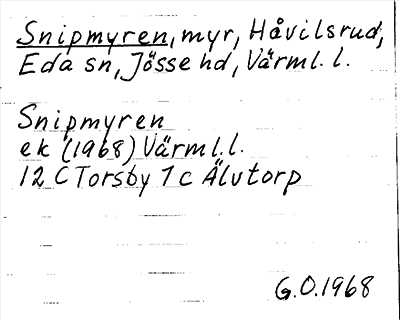 Snipmyren, myr, Håvilsrud,
Eda sn, Jösse hd, Värml. l.
Snipmyren
ek (1968) Värml. l.
12 C Torsby 1 c Älvtorp
G.O. 1968